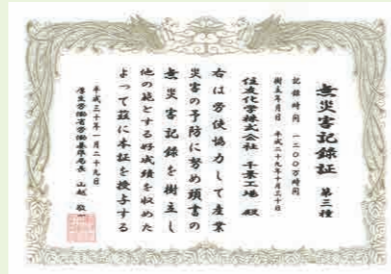 無災害記録証 第三種
記録時間 一二〇〇万時間
樹立年月日 平成二十九年十月三十日
住友化学株式会社 千葉工場 殿
右は労使協力して産業
災害の予防に努め頭書の
無災害記録を樹立し
他の範とする好成績を収めた
よって茲に本証を授与する
平成三十年一月二十九日
厚生労働省労働基準局長 山越 敬一